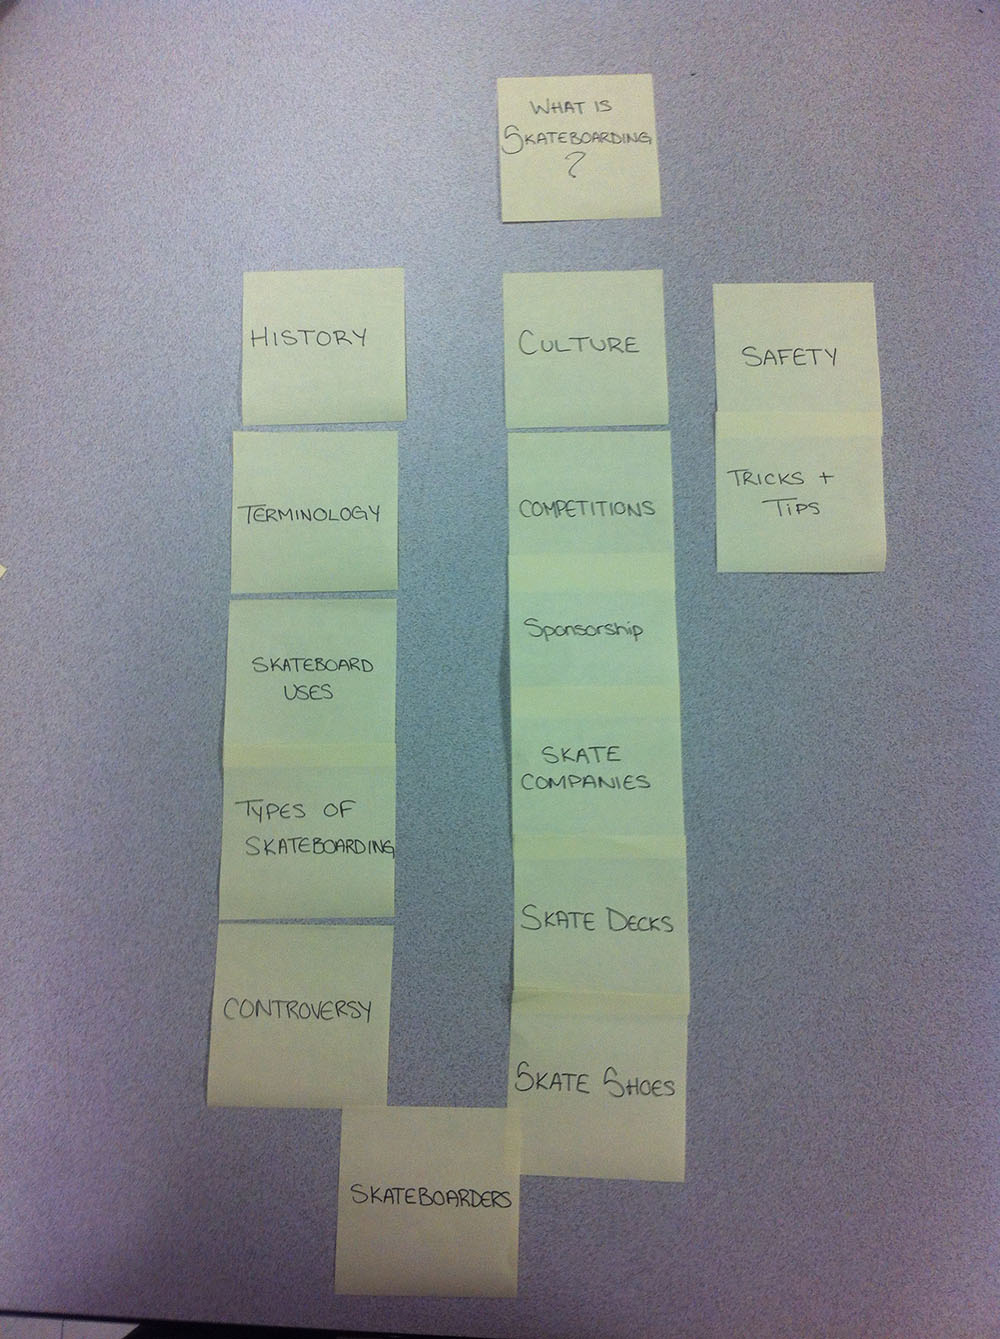 WHAT IS
SKATEBOARDING
?
HISTORY
TERMINOLOGY
SKATEBOARD
USES
TYPES OF
SKATEBOARDING
CONTROVERSY
SKATEBOARDERS
CULTURE
COMPETITIONS
Sponsorship
SKATE
COMPANIES
SKATE DECKS
SKATE SHOES
SAFETY
TRICKS +
TIPS